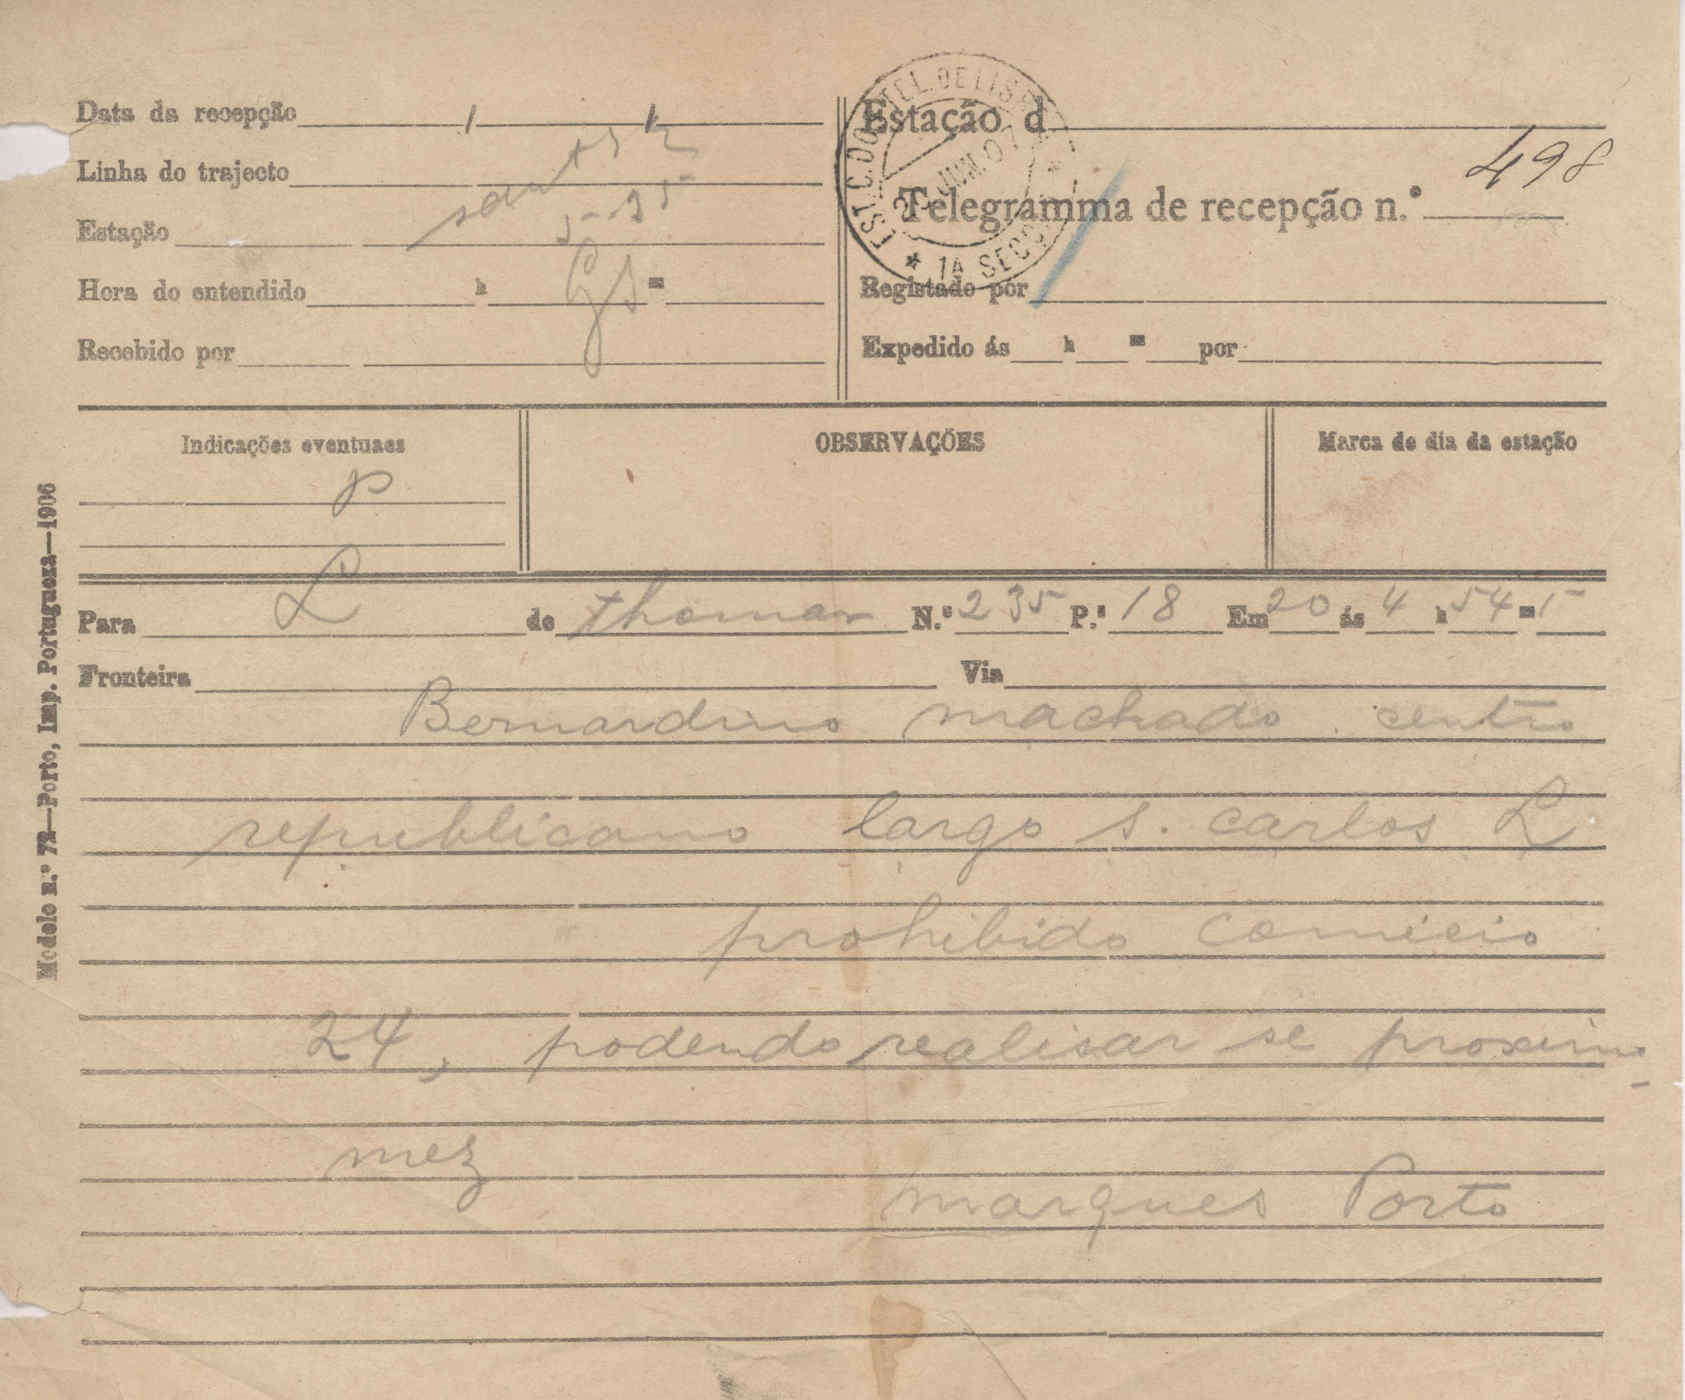 Data da recepção / /
Linha do trajecto
Estação 5-25
Hora do entendido h Gs m
Recebido por
EST. C. DO TEL. DE LIS
JUN. 07
1A SECÇ
Estação d
Telegramma de recepção n.º 498
Registado por
Expedido ás h m por
Indicações eventuaes
P
OBSERVAÇÕES
Marca de dia da estação
Modelo n.º 72—Porto, Imp. Portugueza—1906
Para L de Thomar N.º 235 P.ª 18 Em 20 ás 4 h 54 m
Fronteira Via
Bernardino machado centro
republicano largo s. carlos L
prohibido comicio
24, podendo realisar se proximo
mez
marques Porto